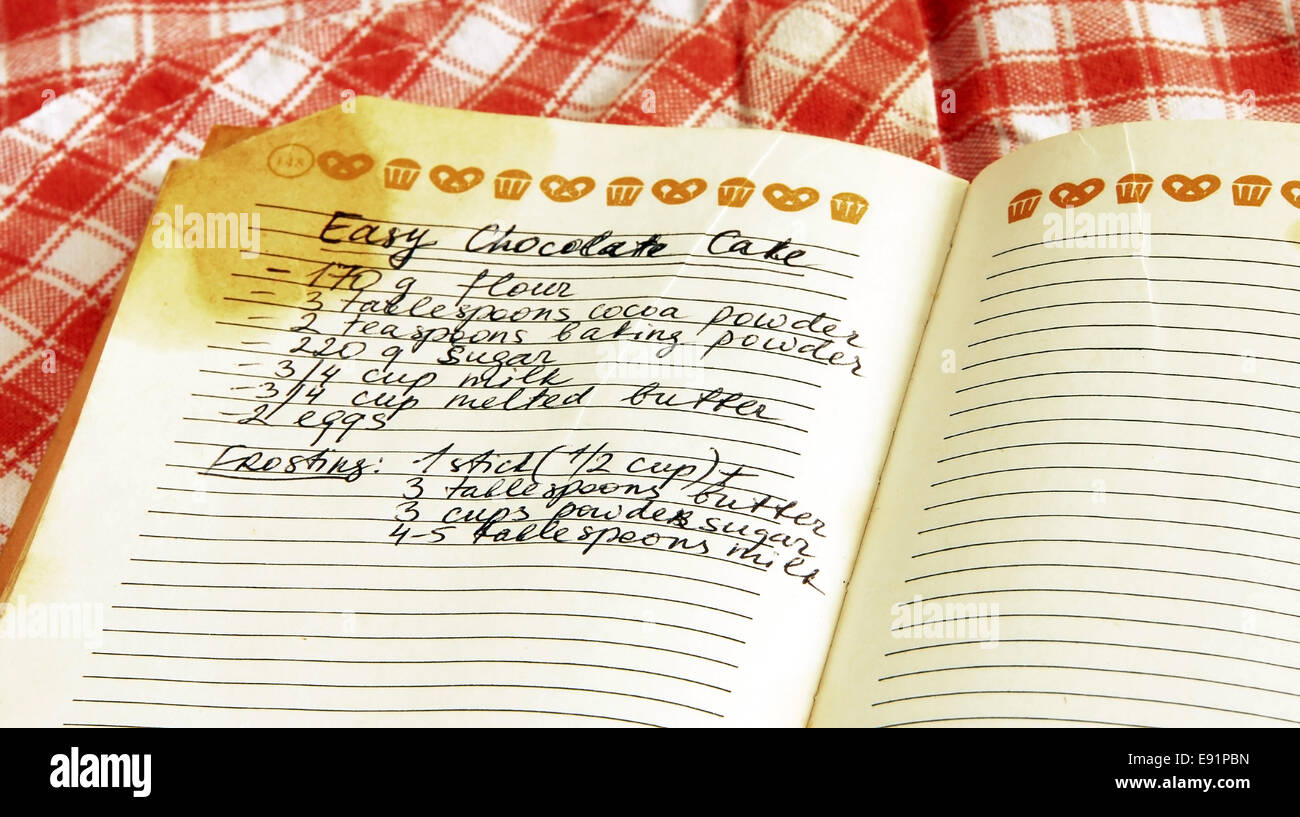 148
Easy Chocolate Cake
- 170 g flour
- 3 tablespoons cocoa powder
- 2 teaspoons baking powder
- 220 g sugar
- 3/4 cup milk
- 3/4 cup melted butter
- 2 eggs
Frosting: 1 stick (1/2 cup) +
3 tablespoons butter
3 cups powder sugar
4-5 tablespoons milk
alamy
alamy
Image ID: E91PBN
www.alamy.com